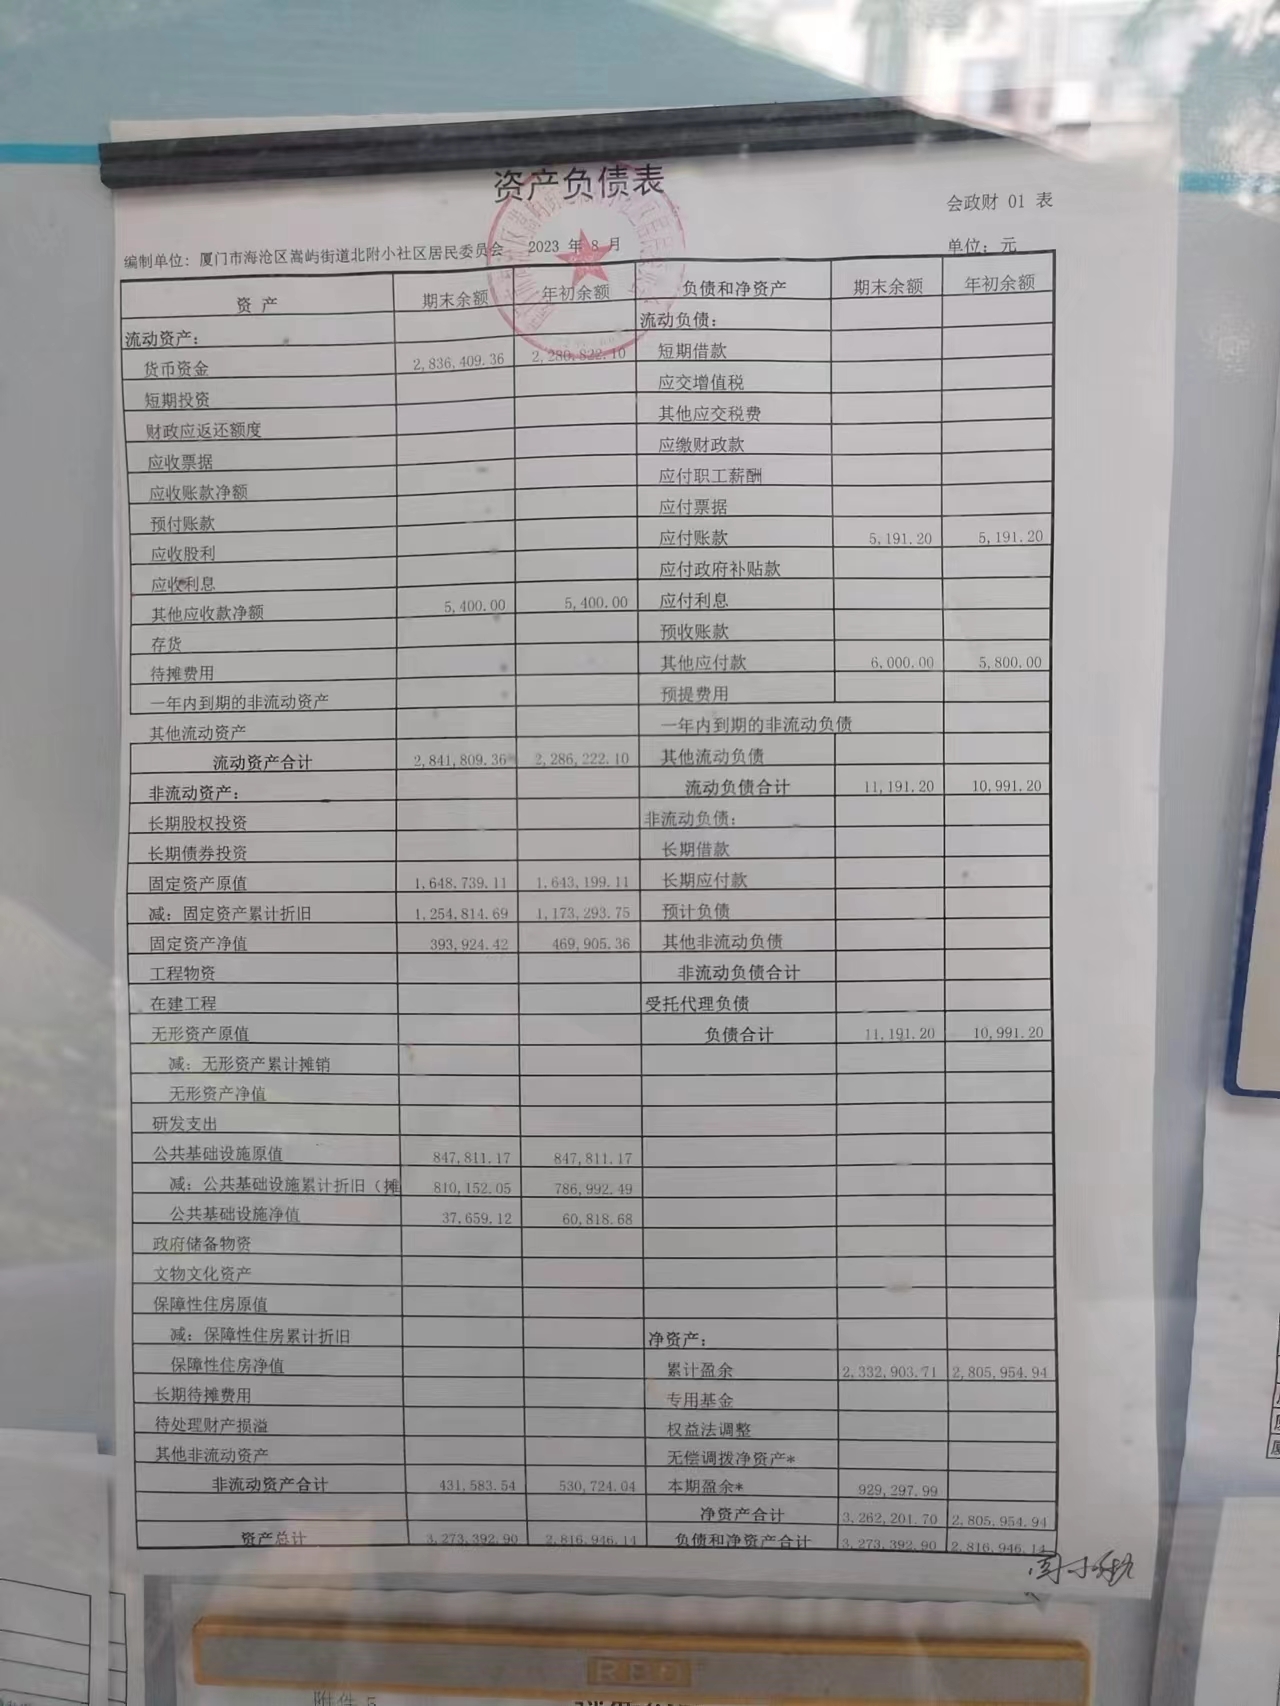 资产负债表
会政财 01 表
编制单位：厦门市海沧区嵩屿街道北附小社区居民委员会 2023 年 8 月 单位：元
资 产 期末余额 年初余额 负债和净资产 期末余额 年初余额
流动资产： 流动负债：
货币资金 2,836,409.36 2,280,822.10 短期借款
短期投资 应交增值税
财政应返还额度 其他应交税费
应收票据 应缴财政款
应收账款净额 应付职工薪酬
预付账款 应付票据
应收股利 应付账款 5,191.20 5,191.20
应收利息 应付政府补贴款
其他应收款净额 5,400.00 5,400.00 应付利息
存货 预收账款
待摊费用 其他应付款 6,000.00 5,800.00
一年内到期的非流动资产 预提费用
其他流动资产 一年内到期的非流动负债
流动资产合计 2,841,809.36 2,286,222.10 其他流动负债
非流动资产： 流动负债合计 11,191.20 10,991.20
长期股权投资 非流动负债：
长期债券投资 长期借款
固定资产原值 1,648,739.11 1,643,199.11 长期应付款
减：固定资产累计折旧 1,254,814.69 1,173,293.75 预计负债
固定资产净值 393,924.42 469,905.36 其他非流动负债
工程物资 非流动负债合计
在建工程 受托代理负债
无形资产原值 负债合计 11,191.20 10,991.20
减：无形资产累计摊销
无形资产净值
研发支出
公共基础设施原值 847,811.17 847,811.17
减：公共基础设施累计折旧（摊 810,152.05 786,992.49
公共基础设施净值 37,659.12 60,818.68
政府储备物资
文物文化资产
保障性住房原值
减：保障性住房累计折旧 净资产：
保障性住房净值 累计盈余 2,332,903.71 2,805,954.94
长期待摊费用 专用基金
待处理财产损溢 权益法调整
其他非流动资产 无偿调拨净资产*
非流动资产合计 431,583.54 530,724.04 本期盈余* 929,297.99
净资产合计 3,262,201.70 2,805,954.94
资产总计 3,273,392.90 2,816,946.14 负债和净资产合计 3,273,392.90 2,816,946.14
RED
附件 5